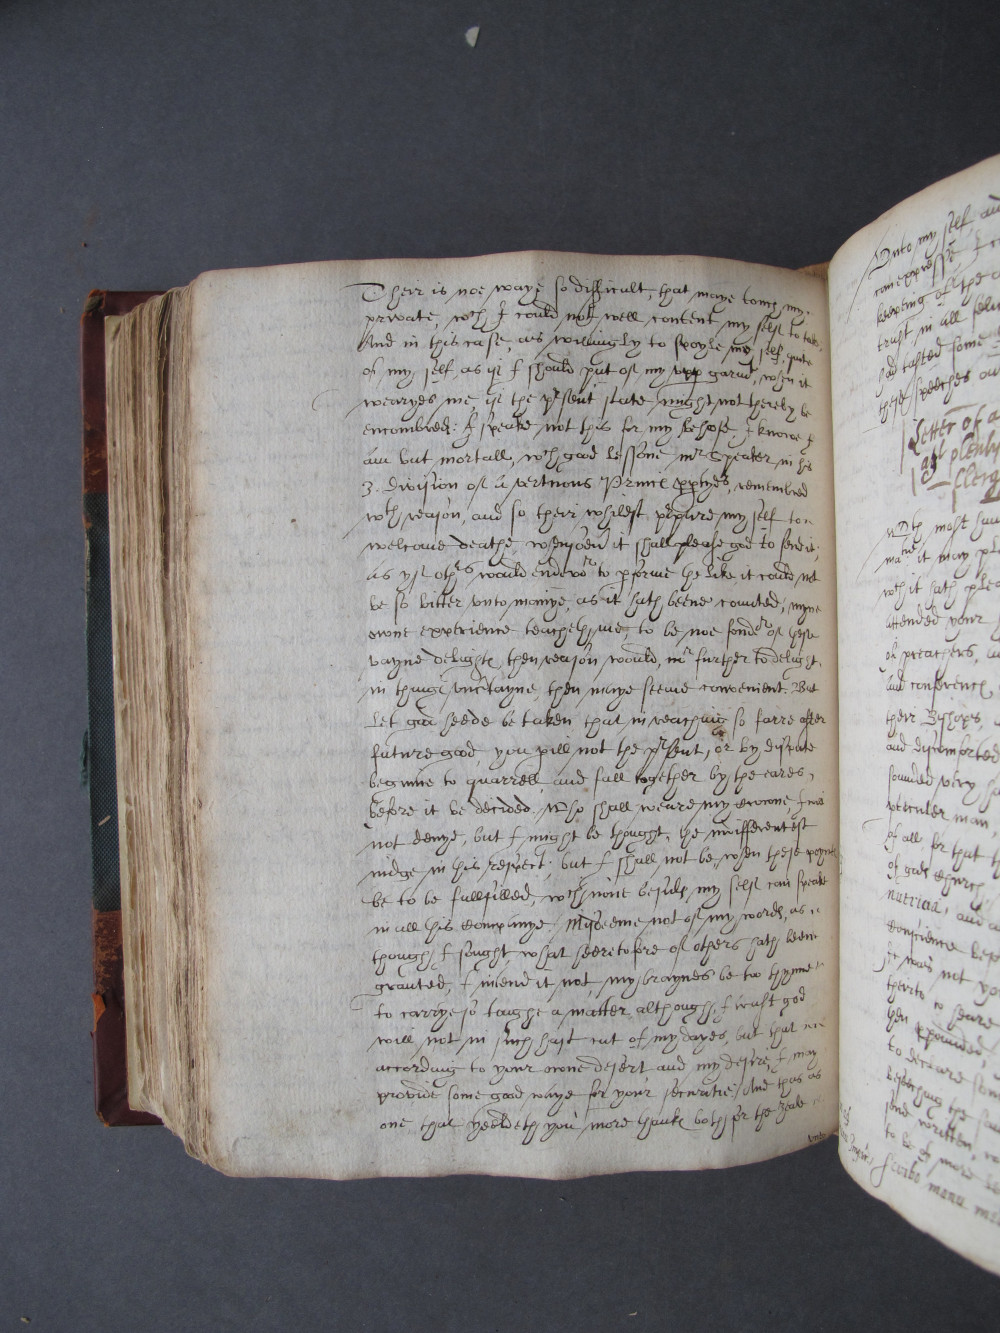 Their is noe waye so difficult, that maye touch my
private, wch I could not well content my self to take,
And in this case, as willingly to spoyle my self, quite
of my self, as if I should put of my upp garmt, when it
wearyes me, if the prsent state might not thereby be
encombred. I speake not this for my behofe, I knowe I
am but mortall, wch good lessone mr Speaker in his
3. division of a vertuous Princes pptyes, remembred
wth reason, and so their whilest prpare my self to
welcome deathe, whensoever it shall please god to send it,
as yf othrs would endevor to pforme the like it could not
be so bitter unto manye, as it hath beene counted, myne
owne experience teacheth me, to be noe fonder of these
vayne delights, then reason would, nor further to delight
in things uncertayne, then maye seeme convenient. But
let good heede be taken that in reaching so faire after
future good, you pill not the prsent, or by dispute
beginne to quarrell, and fall together by the eares,
before it be decided, who shall weare my crowne, I will
not denye, but I might be thought, the indifferentest
iudge in his respect, but I shall not be, when these poynts
be to be fullfilled, wch none besyds my self can speake
in all his companye. Misdeeme not of my words, as
though I sought, what heeretofore of others hath been
granted, I intend it not, my braynes be to thynne
to carrye so toughe a matter, although I trust god
will not in such hast cut of my dayes, but that
according to your owne desert and my desire, I may
provide some good waye for your securitie, And thus as
one that yeeldeth you more thanks both for the zeale
unto
Unto my self, and
can expresse I
keeping of the
trust in all
had tasted some
these speeches
Letter of a
plenty
Clerg
wth most
it may pl
wch it hath plea
attended your
of preachers,
and conference,
their Bishops,
and discomforted
sounded very
perticuler man,
of all, for that
of gods Church
nutricia, and
Conscience kep
It was not yo
therto to heare
then
to declare som
beseching the
send written,
to be of more
scribo manu